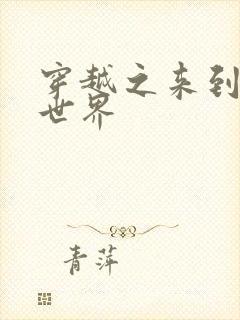 穿越之来到
世界
青萍